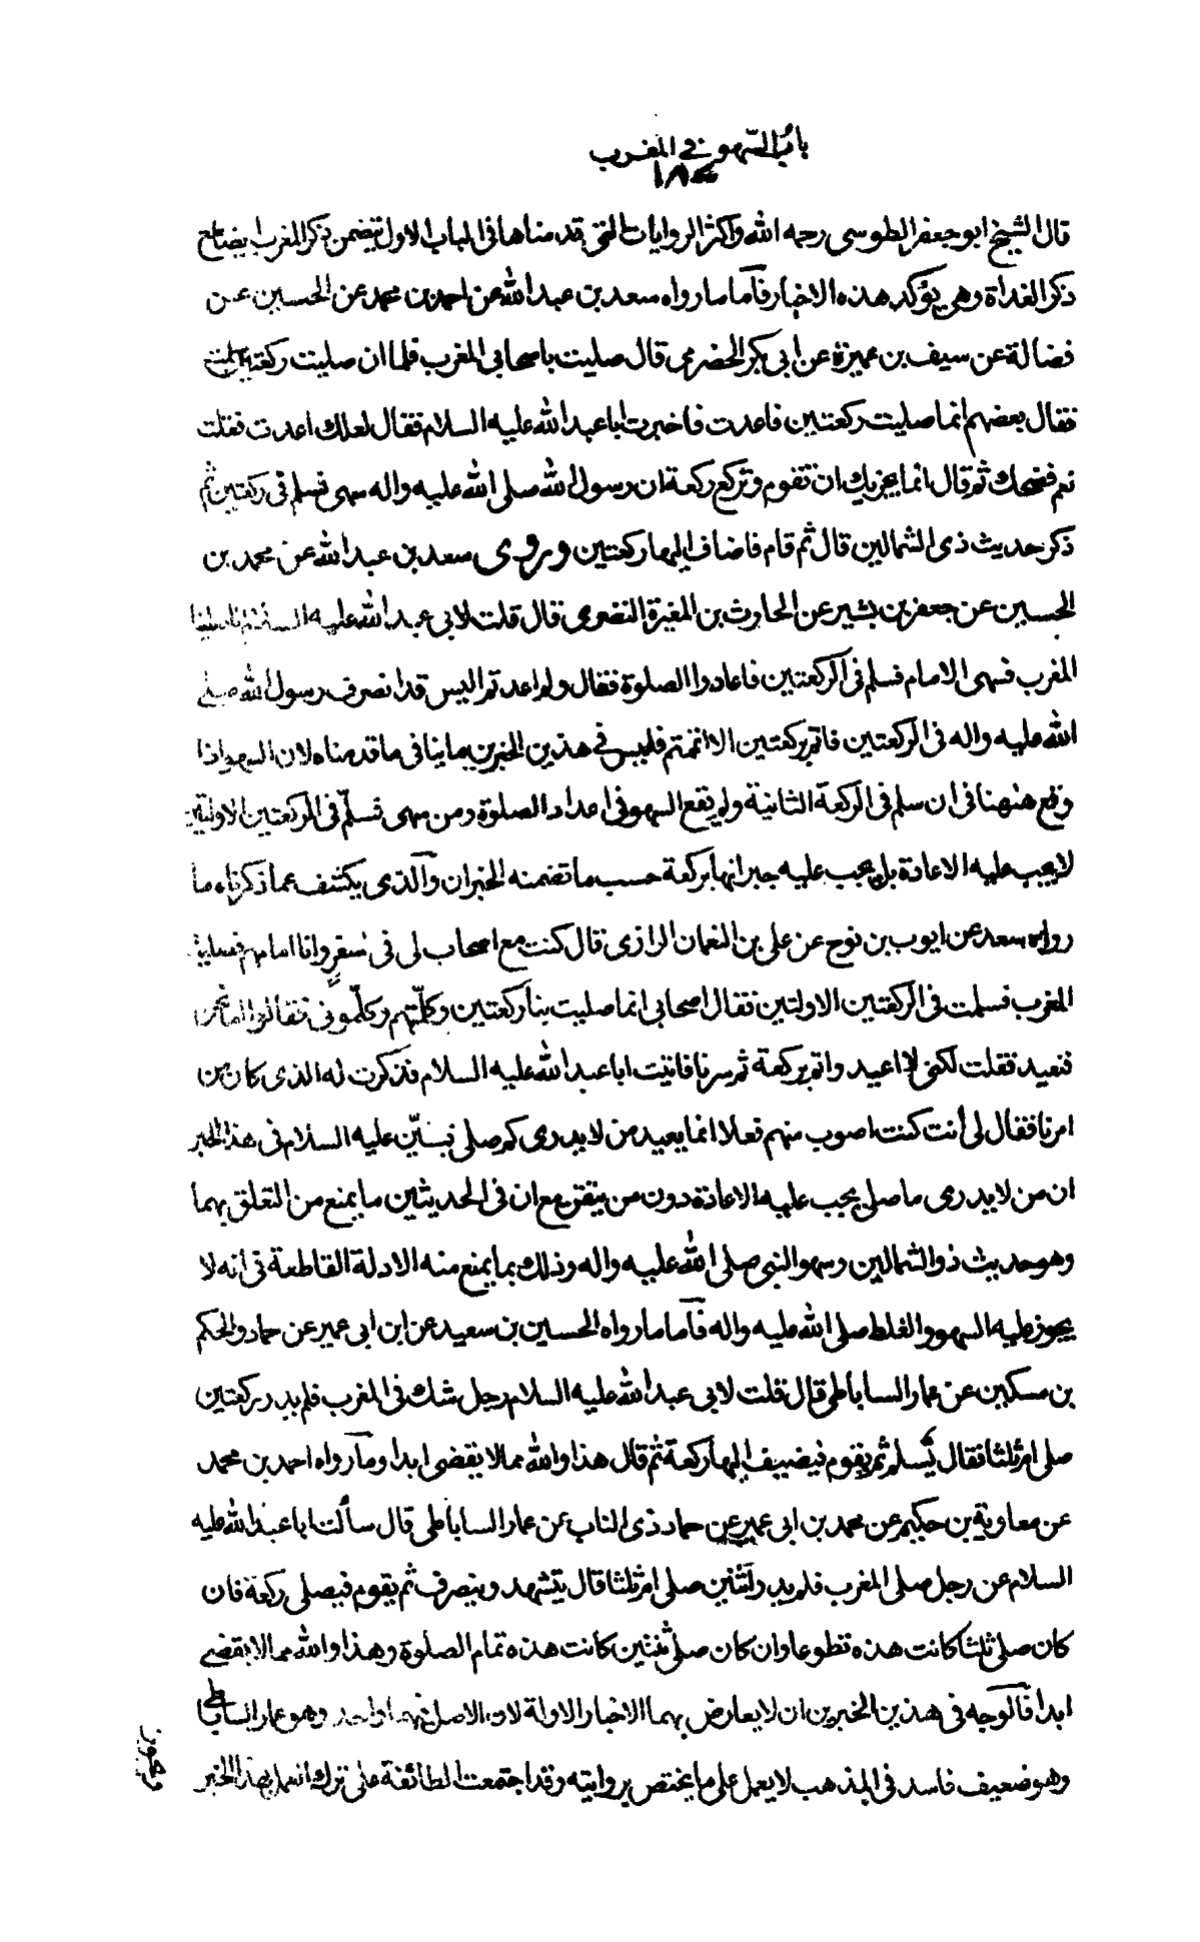 باب السهو في المغرب
١٨٤
قال الشيخ ابو جعفر الطوسي رحمه الله واكثر الروايات التي قدمناها في الباب الاول يتضمن ذكر المغرب ايضا مع
ذكر الغداة وهي يؤكد هذه الاخبار فاما ما رواه سعد بن عبد الله عن احمد بن محمد عن الحسين عن
فضالة عن سيف بن عميرة عن ابي بكر الحضرمي قال صليت باصحابي المغرب فلما ان صليت ركعتين سلمت
فقال بعضهم انما صليت ركعتين فاعدت فاخبرت ابا عبد الله عليه السلام فقال لعلك اعدت فقلت
نعم فضحك ثم قال انما يجزيك ان تقوم وتركع ركعة ان رسول الله صلى الله عليه واله سهى فسلم في ركعتين ثم
ذكر حديث ذي الشمالين قال ثم قام فاضاف اليها ركعتين وروى سعد بن عبد الله عن محمد بن
الحسين عن جعفر بن بشير عن الحارث بن المغيرة النضري قال قلت لابي عبد الله عليه السلام انا صلينا
المغرب فسهى الامام فسلم في الركعتين فاعادوا الصلوة فقال ولم اعدتم اليس قد انصرف رسول الله صلى
الله عليه واله في الركعتين فاتم بركعتين الا اتممتم فليس في هذين الخبرين ما ينافي ما قدمناه لان السهو اذا
وقع ههنا في ان سلم في الركعة الثانية ولم يقع السهو في اعداد الصلوة ومن سهى فسلم في الركعتين الاولتين
لا يجب عليه الاعادة بل يجب عليه جبرانها بركعة حسب ما تضمنه الخبران والذي يكشف عما ذكرناه ما
رواه سعد عن ايوب بن نوح عن علي بن النعمان الرازي قال كنت مع اصحاب لي في سفر وانا امامهم فصليت
المغرب فسلمت في الركعتين الاولتين فقال اصحابي انما صليت بنا ركعتين وكلمتهم وكلموني فقالوا اما نحن
فنعيد فقلت لكني لا اعيد واتم بركعة ثم سرنا فاتيت ابا عبد الله عليه السلام فذكرت له الذي كان من
امرنا فقال لي أنت كنت اصوب منهم فعلا انما يعيد من لا يدرى كم صلى فبين عليه السلام في هذا الخبر
ان من لا يدرى ما صلى يجب عليه الاعادة دون من يتيقن مع ان في الحديثين ما يمنع من التعلق بهما
وهو حديث ذو الشمالين وسهو النبي صلى الله عليه واله وذلك مما يمنع منه الادلة القاطعة في انه لا
يجوز عليه السهو والغلط صلى الله عليه واله فاما ما رواه الحسين بن سعيد عن ابن ابي عمير عن حماد والحكم
بن مسكين عن عمار الساباطي قال قلت لابي عبد الله عليه السلام رجل شك في المغرب فلم يدر ركعتين
صلى ام ثلثا فقال يسلم ثم يقوم فيضيف اليها ركعة ثم قال هذا والله مما لا يقضى ابدا وما رواه احمد بن محمد
عن معاوية بن حكيم عن محمد بن ابي عمير عن حماد ذي الناب عن عمار الساباطي قال سألت ابا عبد الله عليه
السلام عن رجل صلى المغرب فلم يدر اثنين صلى ام ثلثا قال يتشهد وينصرف ثم يقوم فيصلى ركعة فان
كان صلى ثلثا كانت هذه تطوعا وان كان صلى ثنتين كانت هذه تمام الصلوة وهذا والله مما لا يقضى
ابدا فالوجه في هذين الخبرين ان لا يعارض بهما الاخبار الاولة لان الاصل فيهما واحد وهو عمار الساباطي
وهو ضعيف فاسد في المذهب لا يعمل على ما يختص بروايته وقد اجتمعت الطائفة على ترك العمل بهذا الخبر